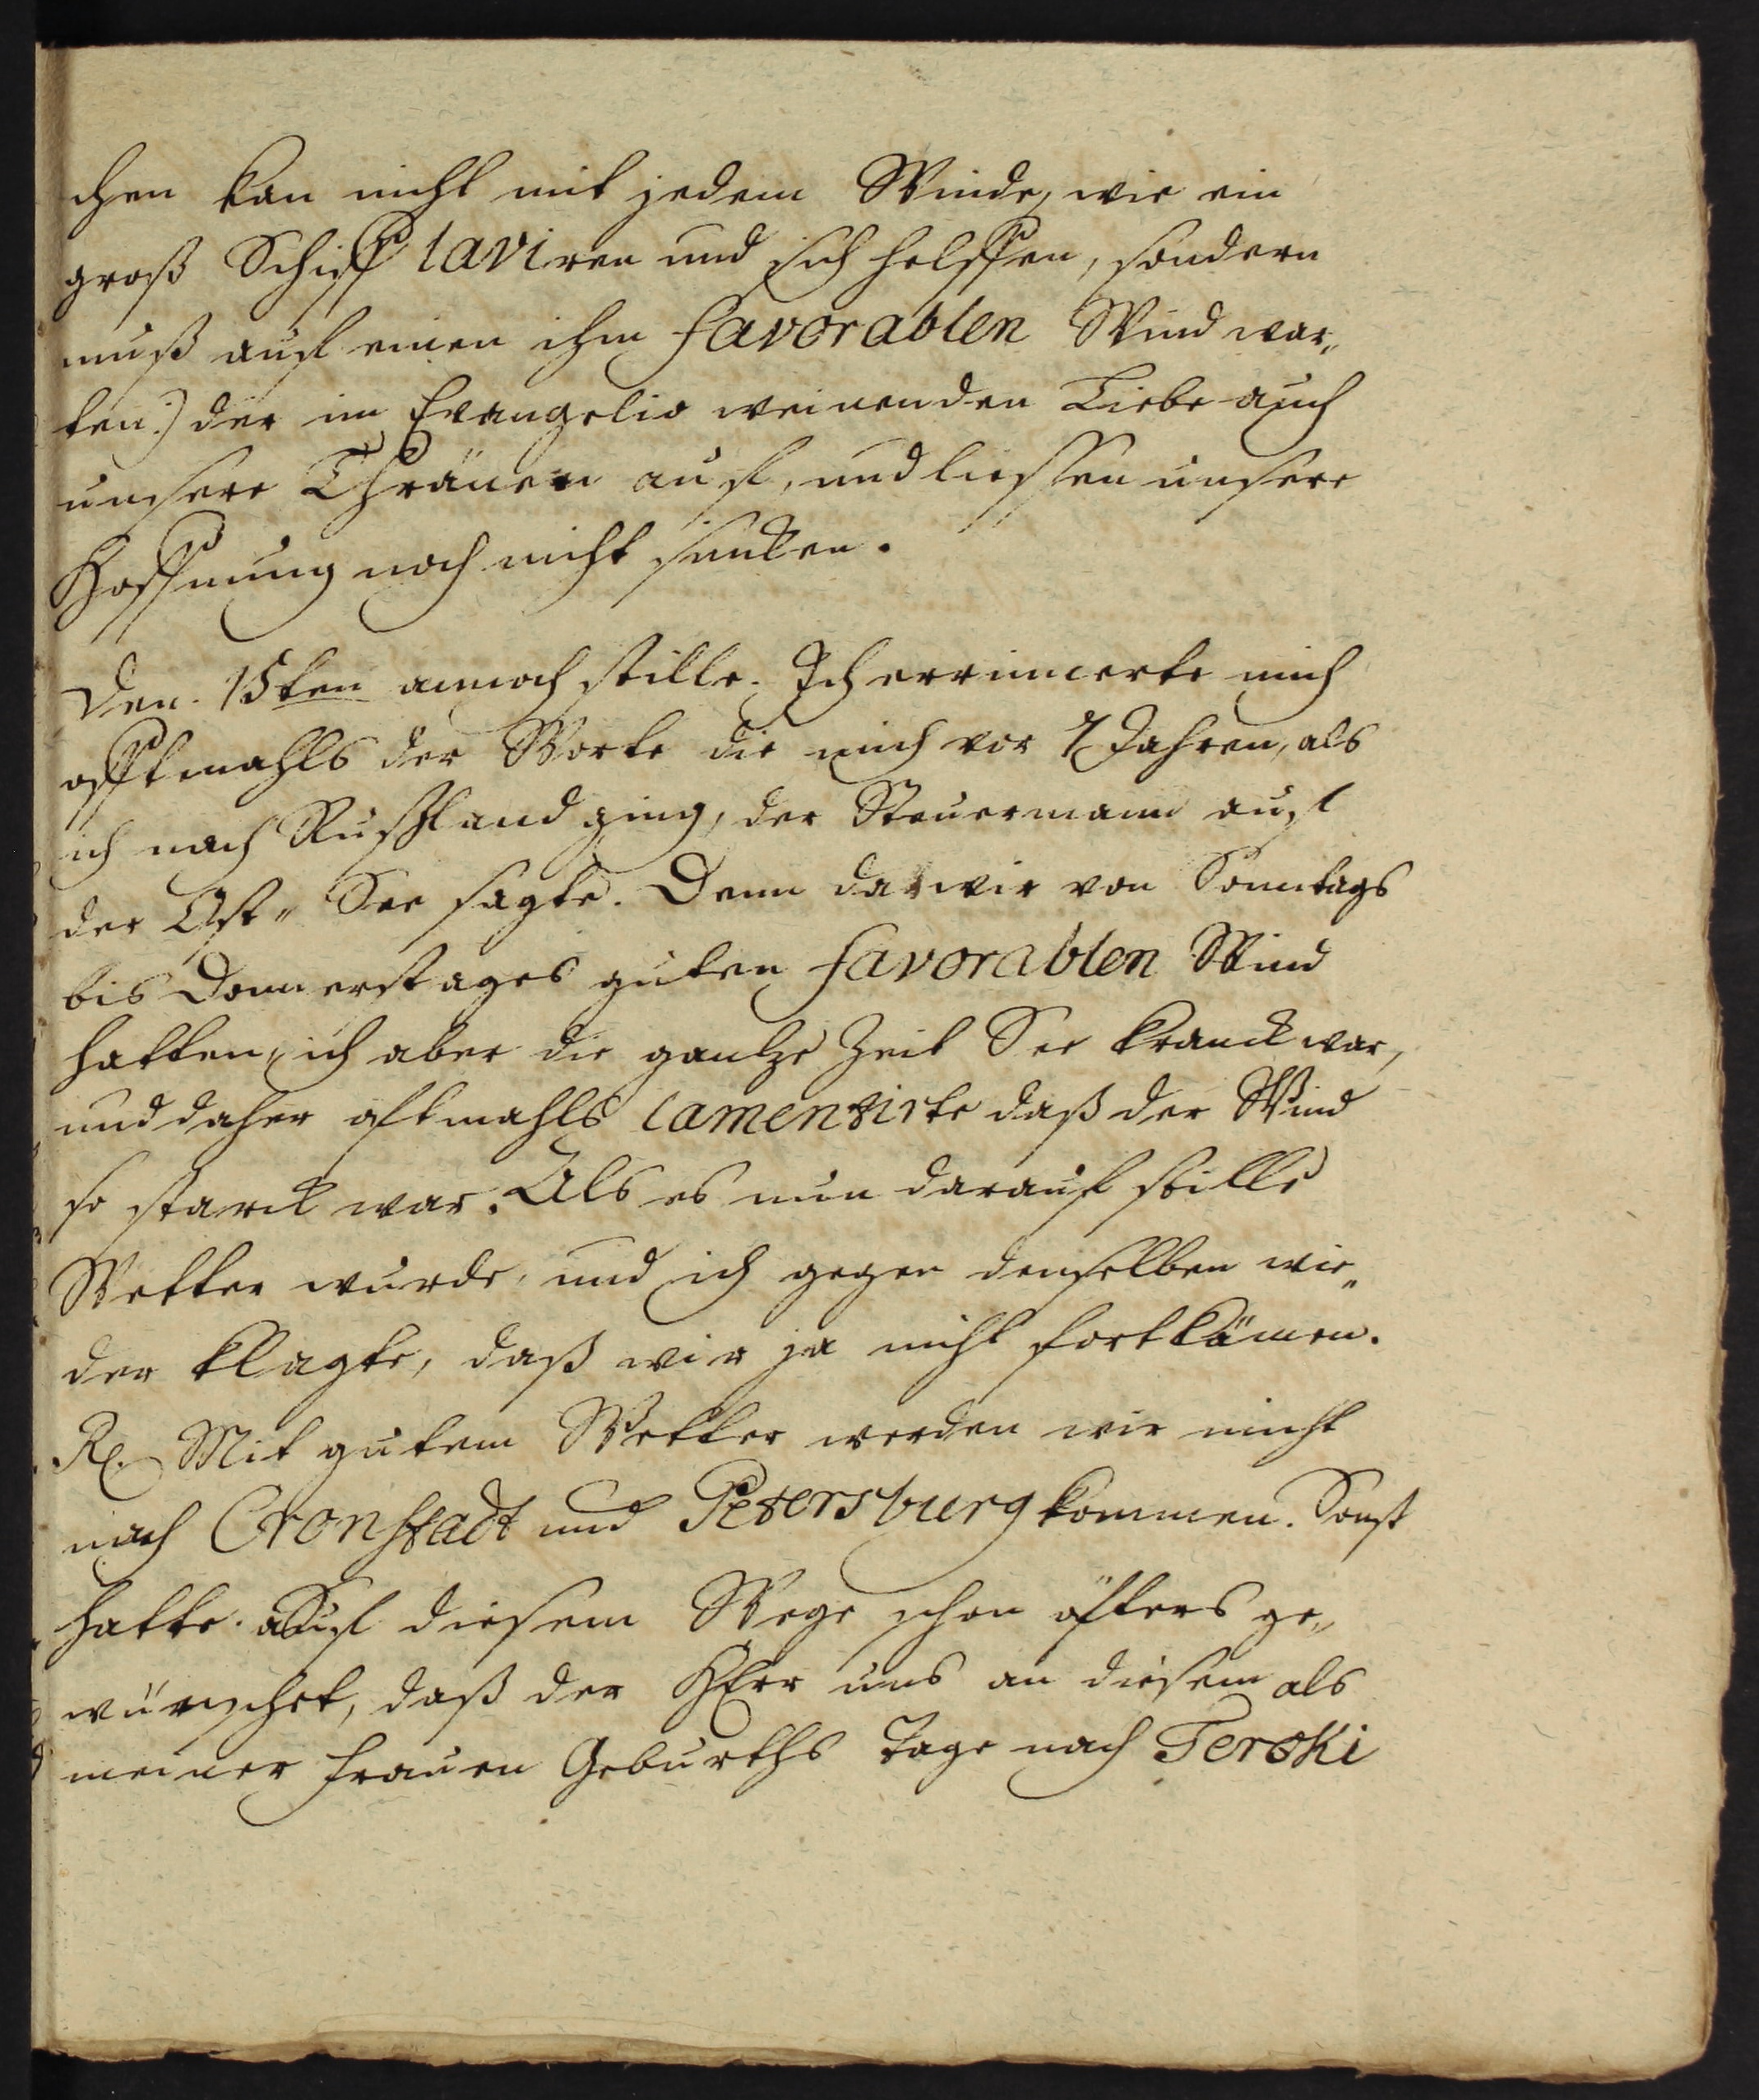 chen kan nicht mit jedem Winde, wie ein
groß Schiff laviren und sich helffen, sondern
muß auf einen ihm favorablen Wind war„
ten:) der im Evangelio weinenden Liebe auch
unsere Thränen auf, und liessen unsere
Hoffnung noch nicht sincken.
Den 15ten annoch stille. Ich errinnerte mich
offtmahls der Worte die mich vor 7 Jahren, als
ich nach Rußland ging, der Steuermann auf
der Ost„ See sagte. Denn da wir von Sonntags
bis Donnerstages guten favorablen Wind
hatten, ich aber die gantze Zeit See kranck war,
und daher oftmahls lamentirte daß der Wind
so starck war. Als es nun darauf stille
Wetter wurde, und ich gegen denselben wie„
der klagte, daß wir ja nicht fortkämen.
Rx. Mit gutem Wetter werden wir nicht
nach Cronstadt und Petersburg kommen. Sonst
hatte auf diesem Wege schon öfters ge„
wünschet, daß der HErr uns an diesem als
meiner Frauen Geburths Tage nach Teroki